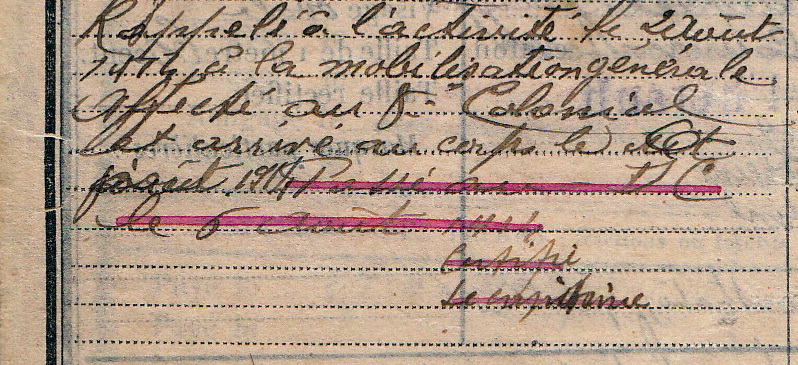 Rappelé à l'activité le 2 Août
1914 à la mobilisation générale
Affecté au 8e Colonial
Est arrivé au corps le
août 1914 Passé au
le 6 Août 1914
Certifié
Le capitaine